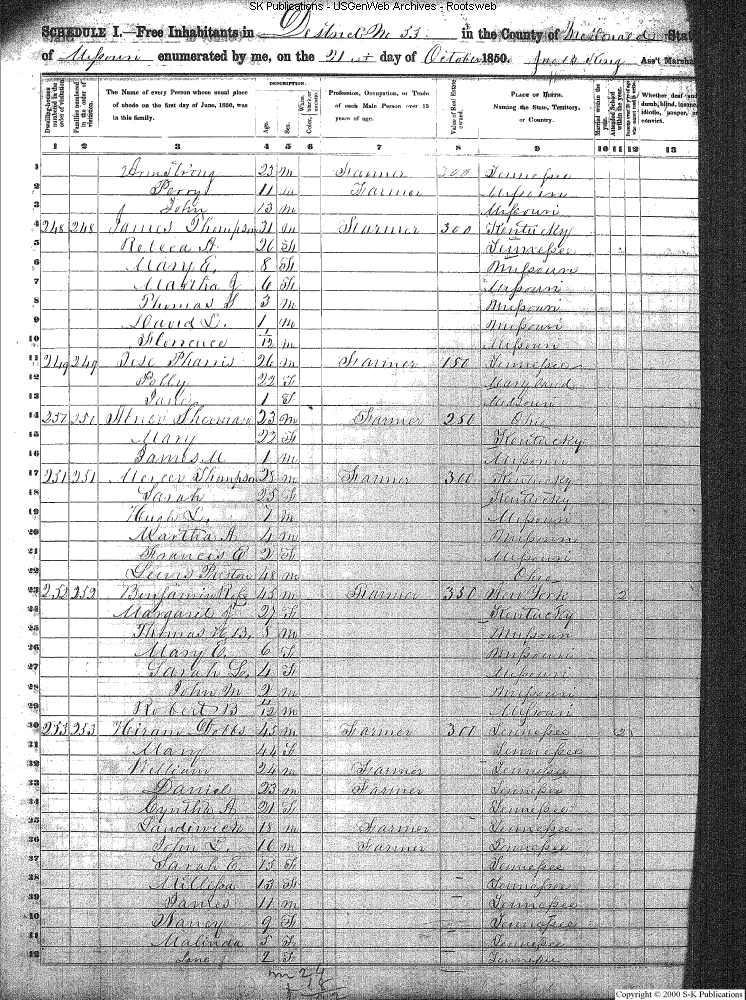 SK Publications - USGenWeb Archives - Rootsweb
SCHEDULE I.—Free Inhabitants in District No 53 in the County of State
of Missouri enumerated by me, on the 21st day of October 1850. Ass't Marshal
Dwelling-houses numbered in the order of visitation. Families numbered in the order of visitation. The Name of every Person whose usual place of abode on the first day of June, 1850, was in this family. DESCRIPTION. Age. Sex. Color, Profession, Occupation, or Trade of each Male Person over 15 years of age. Value of Real Estate owned. PLACE OF BIRTH. Naming the State, Territory, or Country. Married within the year. Attended School within the year. Whether deaf and dumb, blind, insane, idiotic, pauper, or convict.
1 2 3 4 5 6 7 8 9 10 11 12 13
1 Armstrong 23 m Farmer 300 Tennessee
2 Perry 11 m Farmer Missouri
3 John 13 m Missouri
4 248 248 James Thompson 31 m Farmer 300 Kentucky
5 Rebeca A. 26 F Tennessee
6 Mary E. 8 F Missouri
7 Martha J 6 F Missouri
8 Thomas 3 m Missouri
9 David L. 1 m Missouri
10 Florence /12 m Missouri
11 249 249 Pharris 26 m Farmer 150 Tennessee
12 Polly 22 F Maryland
13 1 F Missouri
14 257 251 Abner Sherman 23 m Farmer 250 Ohio
15 Mary 22 F Kentucky
16 James M 1 m Missouri
17 251 251 Mercer Thompson 28 m Farmer 300 Kentucky
18 Sarah 25 F Kentucky
19 Hugh L. 7 m Missouri
20 Martha A. 4 m Missouri
21 Francis E 2 F Missouri
22 Lewis Preston 48 m Ohio
23 252 252 Benjamin 45 m Farmer 350 New York 2
24 Margaret J 27 F Kentucky
25 Thomas H B. 8 m Missouri
26 Mary E. 6 F Missouri
27 Sarah L. 4 F Missouri
28 John M 2 m Missouri
29 Robert B /12 m Missouri
30 253 253 Hiram Fobbs 45 m Farmer 300 Tennessee 2
31 Mary 44 F Tennessee
32 William 24 m Farmer Tennessee
33 Daniel 23 m Farmer Tennessee
34 Cyntha A 21 F Tennessee
35 18 m Farmer Tennessee
36 John L. 16 m Farmer Tennessee
37 Sarah E. 15 F Tennessee
38 Millissa 13 F Tennessee
39 11 m Tennessee
40 Nancy 9 F Tennessee
41 Malinda 5 F Tennessee
42 Jane 2 F Tennessee
m 24
Copyright © 2000 S-K Publications